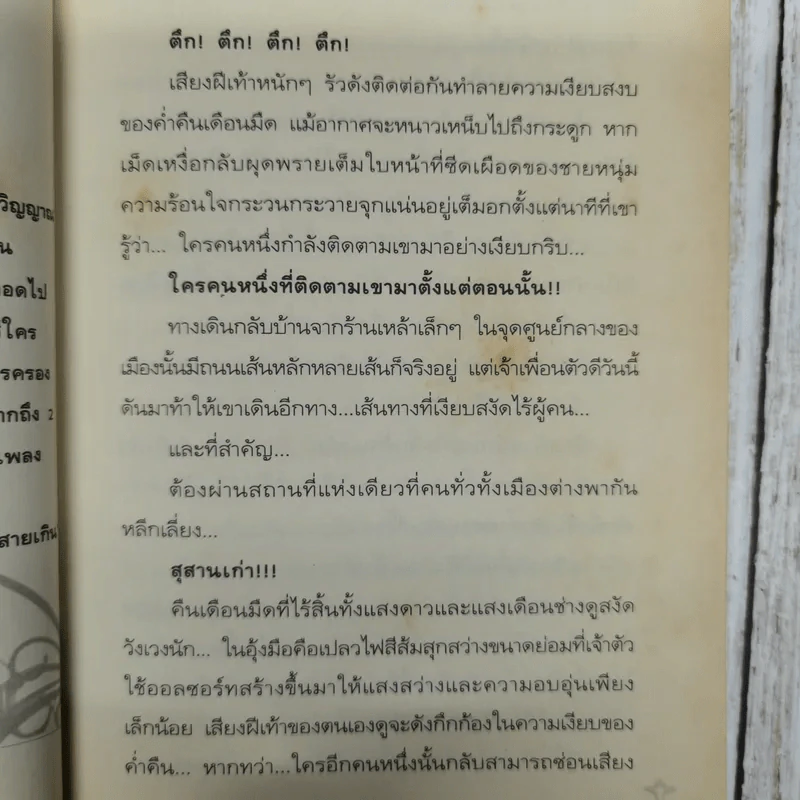 วิญญาณ
น
อดไป
ใคร
รครอง
ากถึง 2
เพลง
สายเกิน
ตึก! ตึก! ตึก! ตึก!
เสียงฝีเท้าหนักๆ รัวดังติดต่อกันทำลายความเงียบสงบ
ของค่ำคืนเดือนมืด แม้อากาศจะหนาวเหน็บไปถึงกระดูก หาก
เม็ดเหงื่อกลับผุดพรายเต็มใบหน้าที่ซีดเผือดของชายหนุ่ม
ความร้อนใจกระวนกระวายจุกแน่นอยู่เต็มอกตั้งแต่นาทีที่เขา
รู้ว่า... ใครคนหนึ่งกำลังติดตามเขามาอย่างเงียบกริบ...
ใครคนหนึ่งที่ติดตามเขามาตั้งแต่ตอนนั้น!!
ทางเดินกลับบ้านจากร้านเหล้าเล็กๆ ในจุดศูนย์กลางของ
เมืองนั้นมีถนนเส้นหลักหลายเส้นก็จริงอยู่ แต่เจ้าเพื่อนตัวดีวันนี้
ดันมาท้าให้เขาเดินอีกทาง...เส้นทางที่เงียบสงัดไร้ผู้คน...
และที่สำคัญ...
ต้องผ่านสถานที่แห่งเดียวที่คนทั่วทั้งเมืองต่างพากัน
หลีกเลี่ยง...
สุสานเก่า!!!
คืนเดือนมืดที่ไร้สิ้นทั้งแสงดาวและแสงเดือนช่างดูสงัด
วังเวงนัก... ในอุ้งมือคือเปลวไฟสีส้มสุกสว่างขนาดย่อมที่เจ้าตัว
ใช้ออลซอร์ทสร้างขึ้นมาให้แสงสว่างและความอบอุ่นเพียง
เล็กน้อย เสียงฝีเท้าของตนเองดูจะดังกึกก้องในความเงียบของ
ค่ำคืน... หากทว่า...ใครอีกคนหนึ่งนั้นกลับสามารถซ่อนเสียง